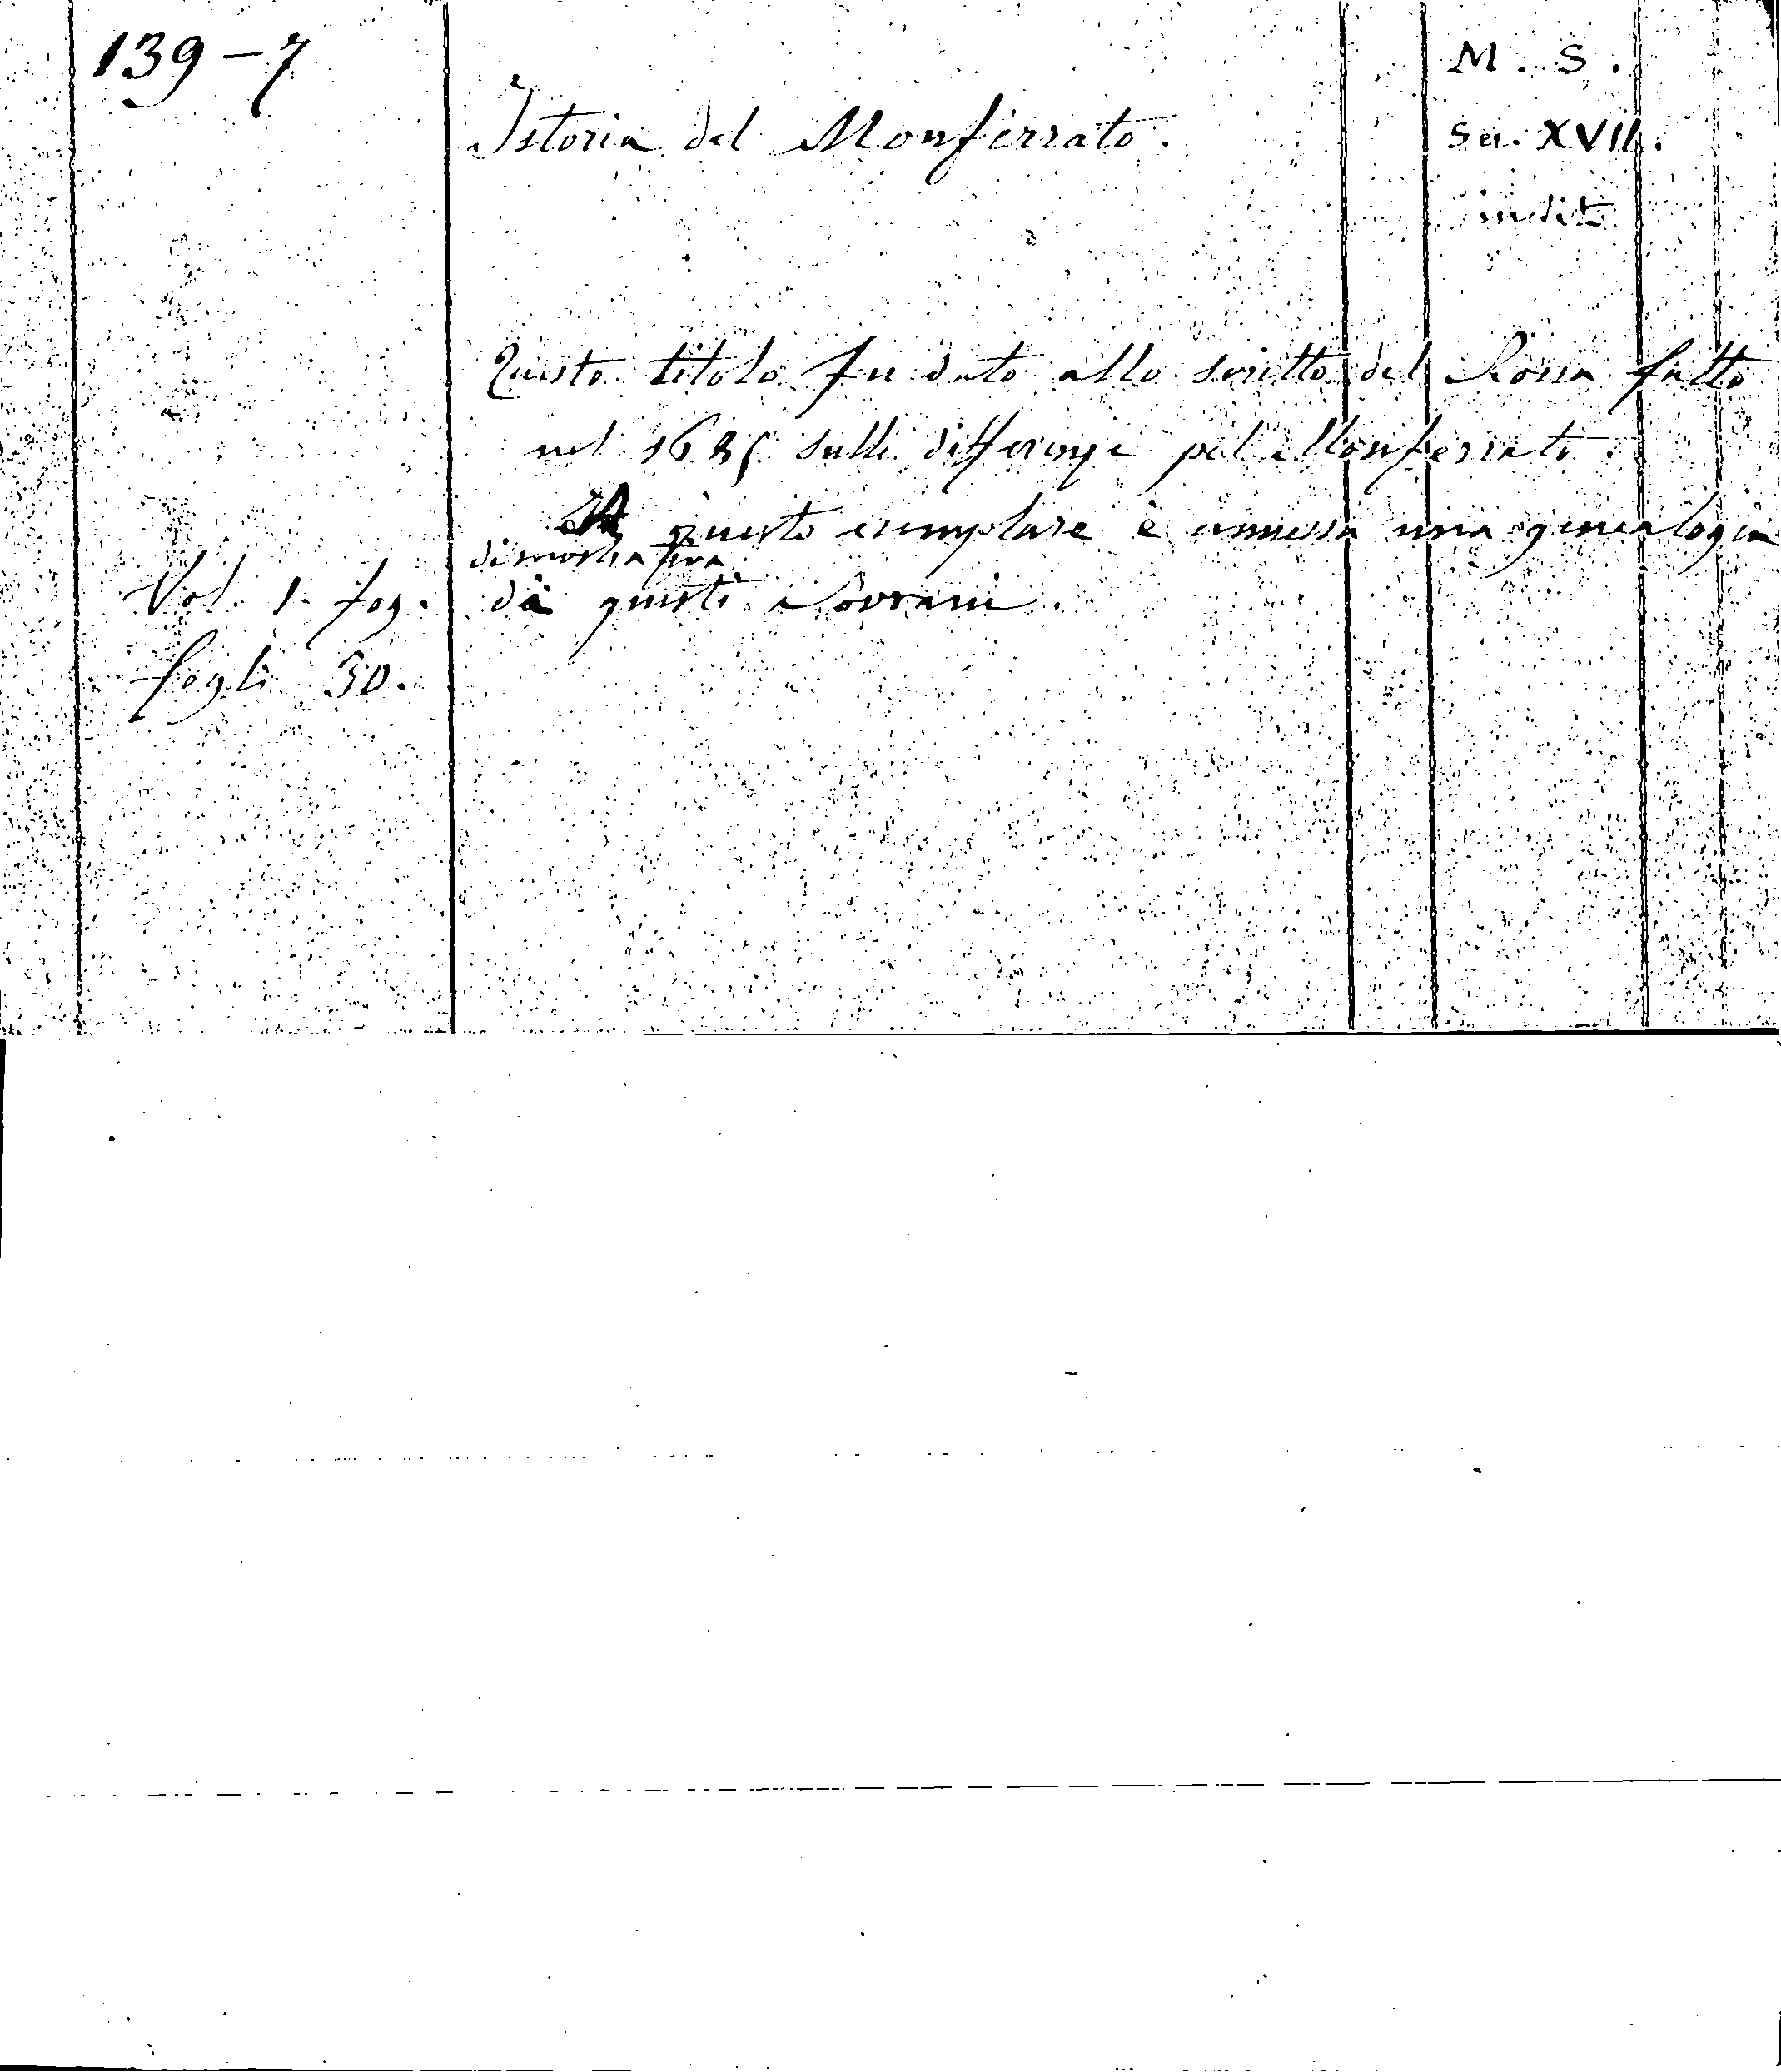 139-7
M. S.
Istoria del Monferrato.
Sec. XVII.
inedito
Questo titolo fu dato allo scritto del Rossa fatto
nel sulle differenze pel Monferrato.
A questo esemplare è annessa una genealogia
dimostrativa
di questi Sovrani.
Vol. 1. fog.
fogli 30.